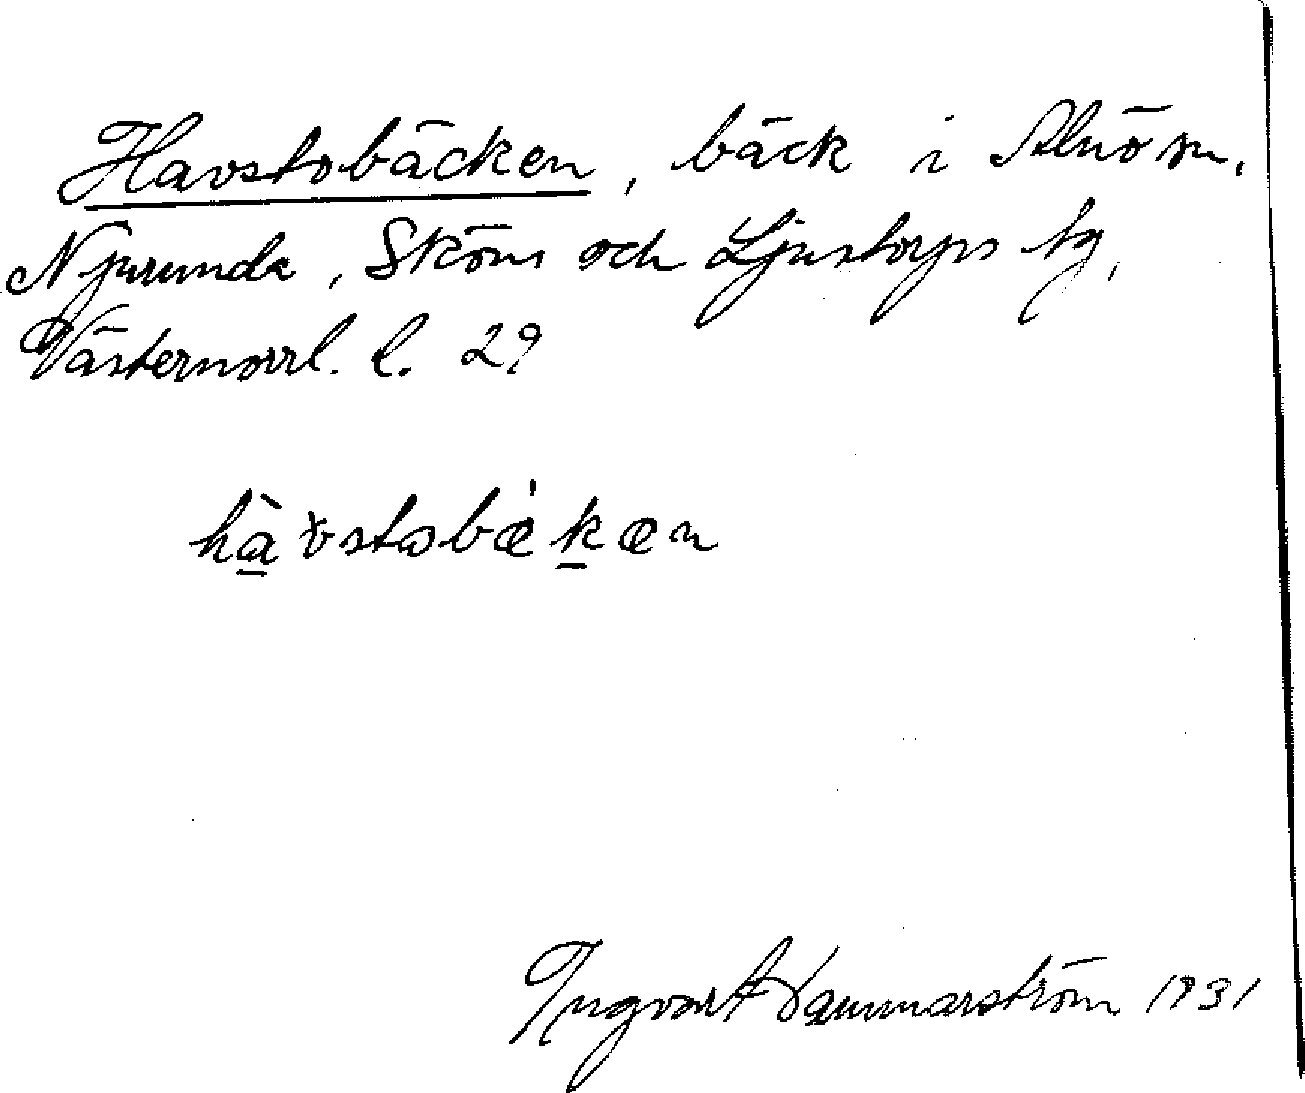 Havstobäcken, bäck i Alnö sn,
Njurunda, Sköns och Ljustorps tg,
Västernorrl. l. 29
hàvstobækæn
Ingvart Hammarström 1931